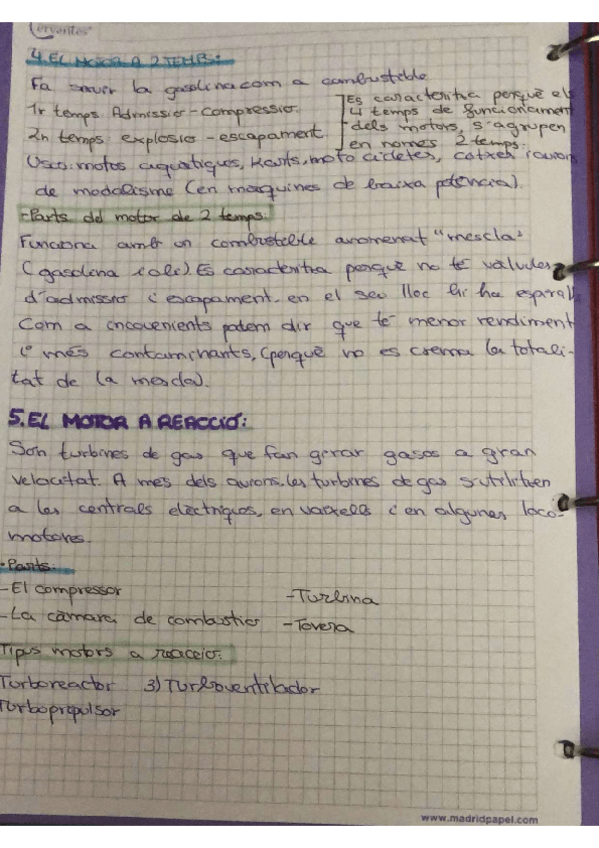 Cervantes
4. EL MOTOR A 2 TEMPS:
Fa servir la gasolina com a combustible
1r temps Admissió-compressió
2n temps: explosió-escapament
Es caracteritza perquè els
4 temps de funcionament
dels motors, s'agrupen
en només 2 temps.
Usos: motos aquàtiques, Karts, moto cicletes, cotxes i avions
de modelisme (en maquines de baixa potència).
-Parts del motor de 2 temps.
Funciona amb un combustible anomenat "mescla"
(gasolina i oli). Es caracteritza perquè no té vàlvules
d'admissió i escapament. en el seu lloc hi ha
Com a inconvenients podem dir que té menor rendiment
i més contaminants, (perquè no es crema la totali-
tat de la mescla).
5. EL MOTOR A REACCIÓ:
Son turbines de gas que fan girar gasos a gran
velocitat. A mes dels avions, les turbines de gas s'utilitzen
a les centrals elèctriques, en vaixells i en algunes loco-
motores.
-Parts:
-El compressor
-Turbina
-La càmara de combustió
-Tovera
Tipus motors a reacció:
Turboreactor 3) Turboventilador
Turbopropulsor
www.madridpapel.com